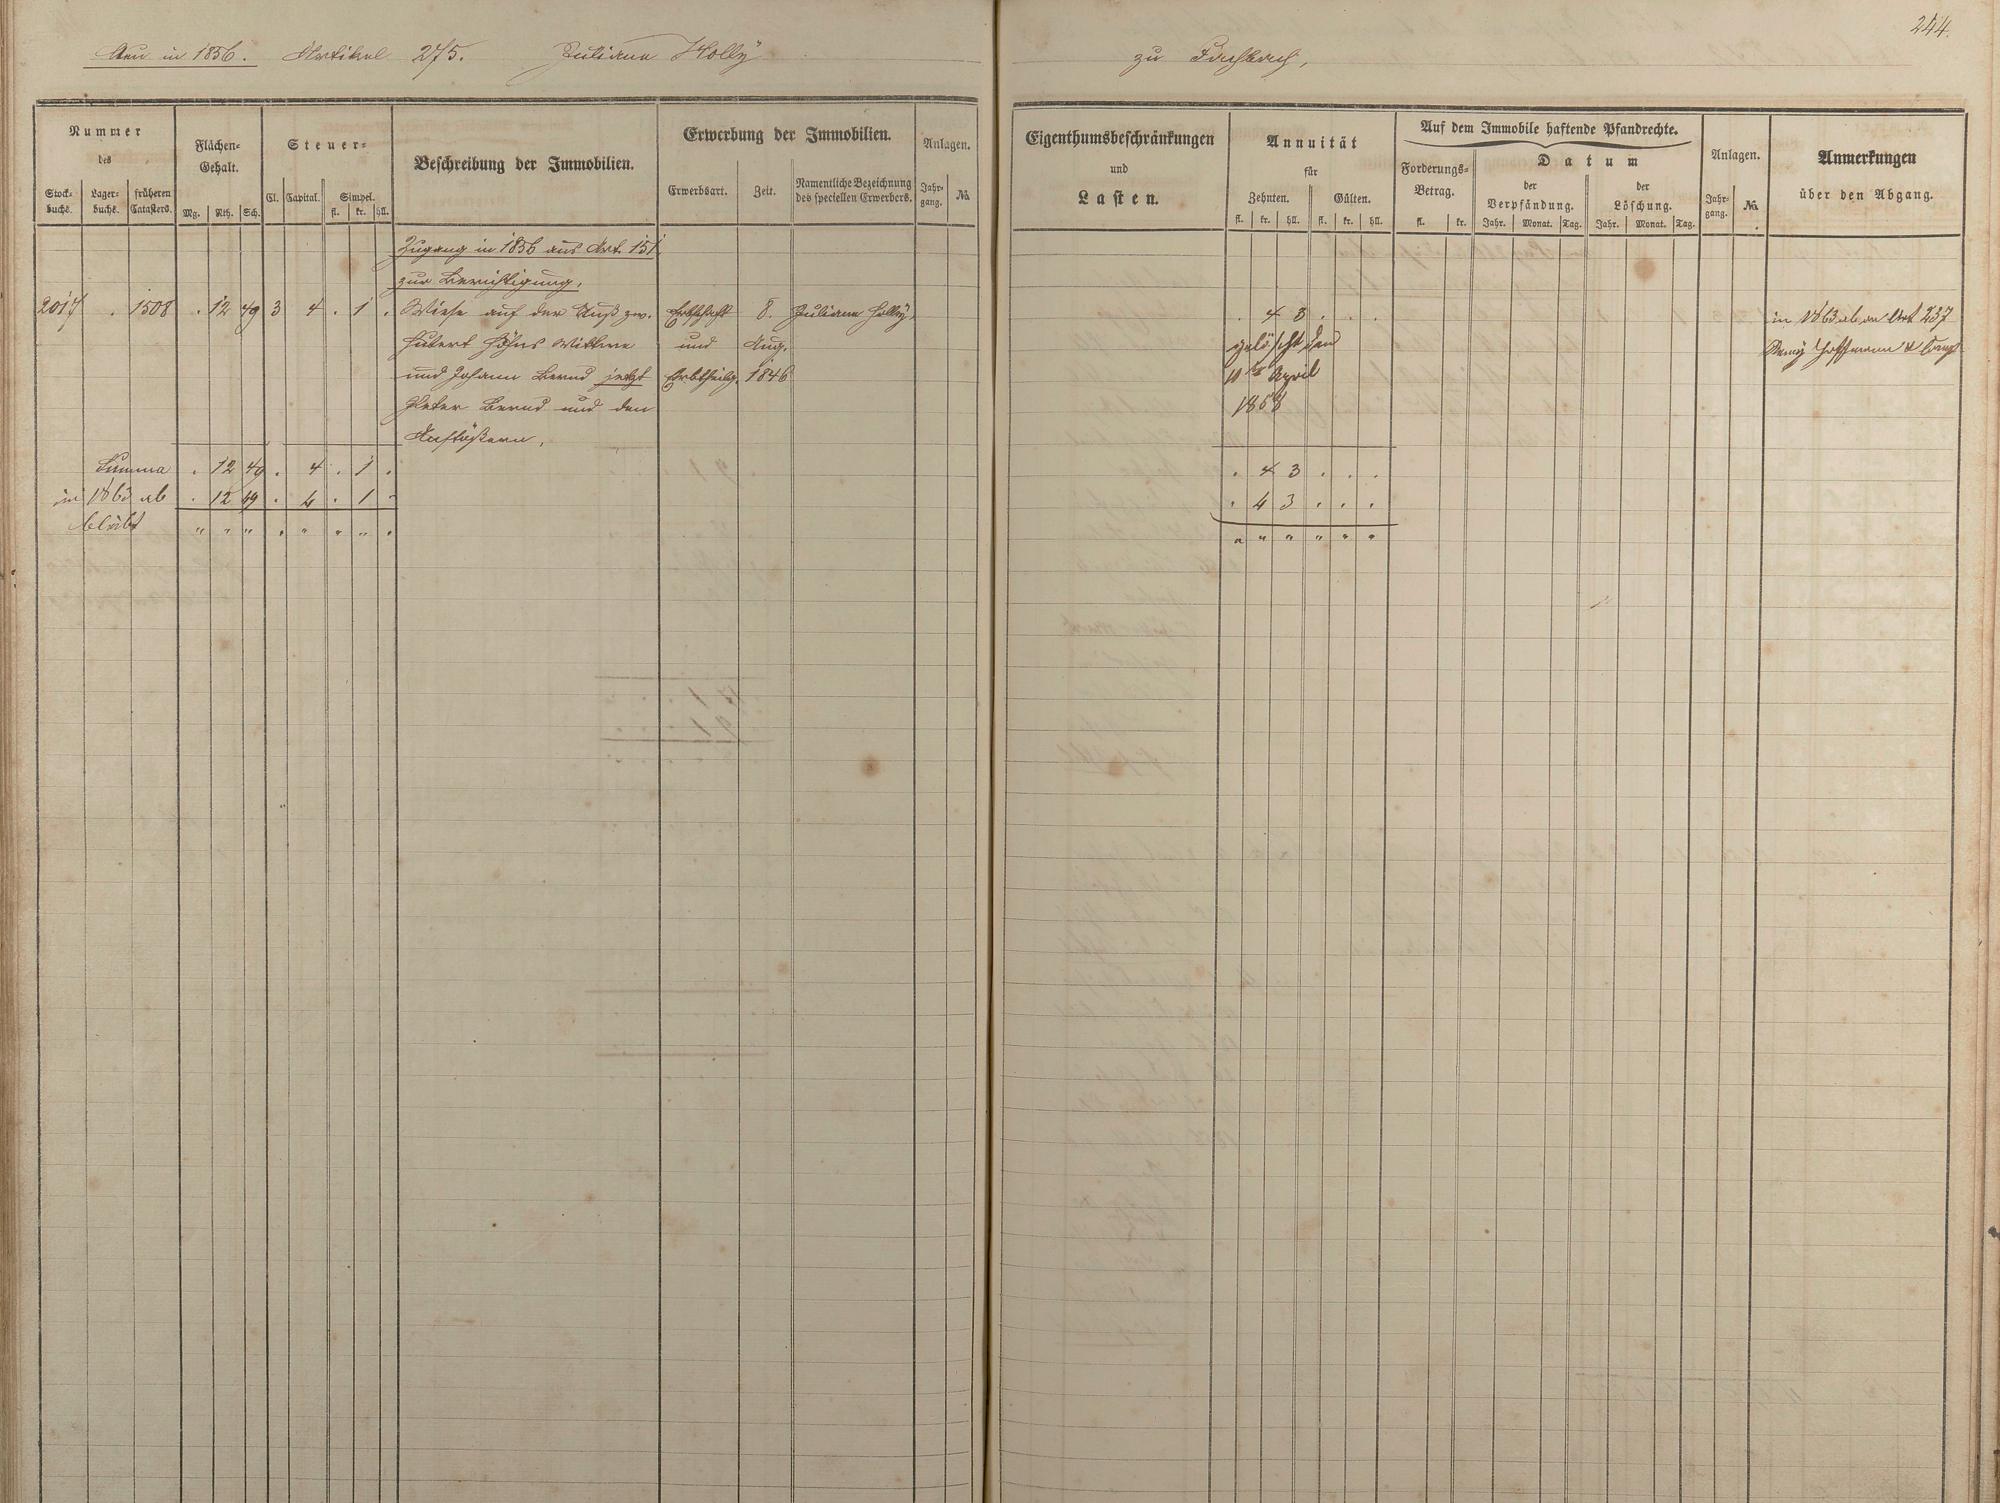 244.
Neu in 1856. Artikel 275. Juliana Holly
zu Fachbach,
Nummer
des
Stock-
buchs.
Lager-
buchs.
früheren
Catasters.
Flächen-
Gehalt.
Mg. Rth. Sch.
Steuer-
Cl. Capital. Simpel.
fl. kr. hll.
Beschreibung der Immobilien.
Erwerbung der Immobilien.
Erwerbsart. Zeit.
Namentliche Bezeichnung
des speciellen Erwerbers.
Anlagen.
Jahr-
gang.
No.
Eigenthumsbeschränkungen
und
Lasten.
Annuität
für
Zehnten. Gülten.
fl. kr. hll. fl. kr. hll.
Auf dem Immobile haftende Pfandrechte.
Forderungs-
Betrag.
fl. kr.
Datum
der
Verpfändung.
Jahr. Monat. Tag.
der
Löschung.
Jahr. Monat. Tag.
Anlagen.
Jahr-
gang.
No.
Anmerkungen
über den Abgang.
Zugang in 1856 aus Art. 151
zur Berichtigung.
2017 . 1508 . 12 49 3 4 . 1 . Wiese auf der zw. Erbschaft 8. Juliana Holly . 4 3 . . . in 1863 ab an Art 237
Höhns Wittwe und Aug. gelöscht den Remy Hoffmann & Comp
und Johann Bernd jetzt Erbtheilg. 1846 April
Peter Bernd und den 1858
Anstößern.
Summa . 12 49 . 4 . 1 . . 4 3 . . .
in 1863 ab . 12 49 . 4 . 1 . . 4 3 . . .
bleibt " " " . " . " . " " " " " "